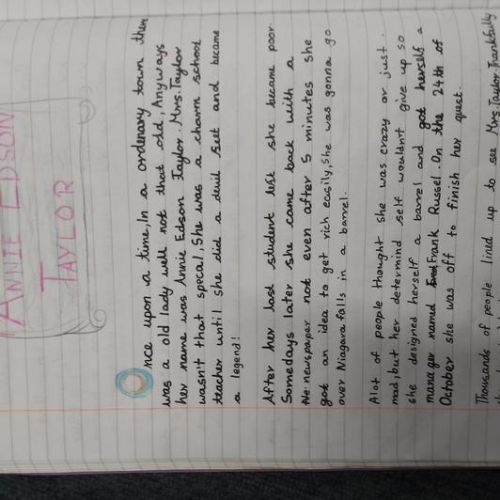 ANNIE EDSON
TAYLOR
Once upon a time, In a ordenary town then
was a old lady well not that old, Anyways
her name was Annie Edson Taylor. Mrs. Taylor
wasn't that specal, She was a charm school
teacher until she did a devil selt and became
a legend!
After her last student left she became poor.
Somedays later she came back with a
newspaper not even after 5 minutes she
got an idea to get rich easily, she was gonna go
over Niagara falls in a barrel.
Alot of people thought she was crazy or just
mad, but her determind self wouldn't give up so
she designed herself a barrel and got herself a
manager named Frank Russel. On the 24th of
October she was off to finish her quest.
Thousands of people lined up to see Mrs. Taylor, Thankfully